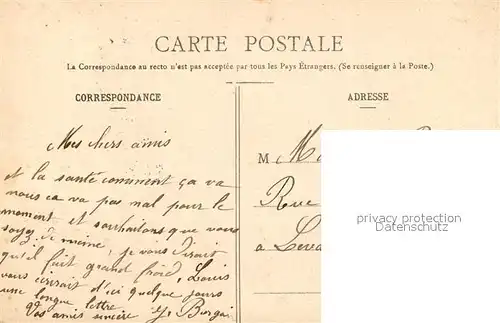 CARTE POSTALE
La Correspondance au recto n'est pas acceptée par tous les Pays Étrangers. (Se renseigner à la Poste.)
CORRESPONDANCE
ADRESSE
Mes chers amis
et la santé comment ça va
nous ça va pas mal pour le
moment et souhaitons que vous
soyez de même, je vous dirait
qu'il fait grand froid, Louis
vous écrirait d'ici quelque jours
une longue lettre
Vos amis sincère
M
Rue
à
privacy protection
Datenschutz